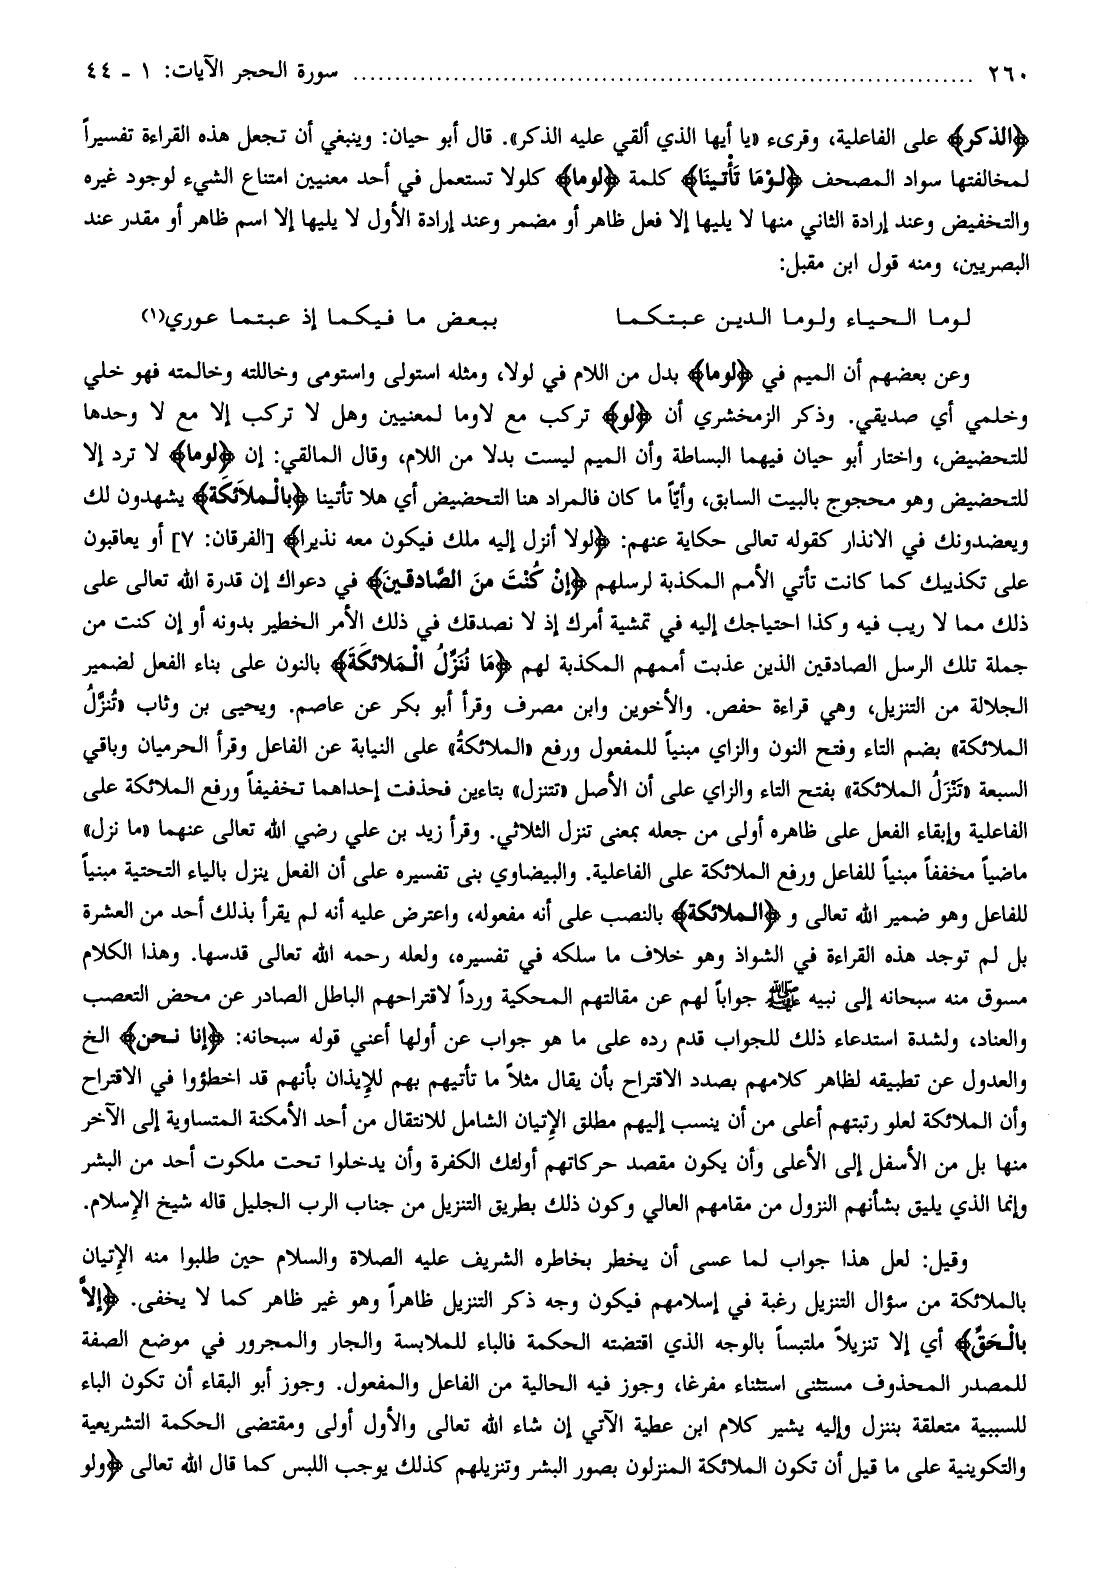 ٢٦٠ ........................................................................ سورة الحجر الآيات: ١ - ٤٤
﴿الذكر﴾ على الفاعلية، وقرىء «يا أيها الذي ألقي عليه الذكر». قال أبو حيان: وينبغي أن تجعل هذه القراءة تفسيراً
لمخالفتها سواد المصحف ﴿لَوْمَا تَأْتينَا﴾ كلمة ﴿لوما﴾ كلولا تستعمل في أحد معنيين امتناع الشيء لوجود غيره
والتخفيض وعند إرادة الثاني منها لا يليها إلا فعل ظاهر أو مضمر وعند إرادة الأول لا يليها إلا اسم ظاهر أو مقدر عند
البصريين، ومنه قول ابن مقبل:
لوما الحياء ولوما الدين عبتكما ببعض ما فيكما إذ عبتما عوري(١)
وعن بعضهم أن الميم في ﴿لوما﴾ بدل من اللام في لولا، ومثله استولى واستومى وخاللته وخالمته فهو خلي
وخلمي أي صديقي. وذكر الزمخشري أن ﴿لو﴾ تركب مع لاوما لمعنيين وهل لا تركب إلا مع لا وحدها
للتحضيض، واختار أبو حيان فيهما البساطة وأن الميم ليست بدلا من اللام، وقال المالقي: إن ﴿لوما﴾ لا ترد إلا
للتحضيض وهو محجوج بالبيت السابق، وأيّاً ما كان فالمراد هنا التحضيض أي هلا تأتينا ﴿بالْملاَئكَة﴾ يشهدون لك
ويعضدونك في الانذار كقوله تعالى حكاية عنهم: ﴿لولا أنزل إليه ملك فيكون معه نذيرا﴾ [الفرقان: ٧] أو يعاقبون
على تكذيبك كما كانت تأتي الأمم المكذبة لرسلهم ﴿إنْ كُنْتَ منَ الصَّادقينَ﴾ في دعواك إن قدرة الله تعالى على
ذلك مما لا ريب فيه وكذا احتياجك إليه في تمشية أمرك إذ لا نصدقك في ذلك الأمر الخطير بدونه أو إن كنت من
جملة تلك الرسل الصادقين الذين عذبت أممهم المكذبة لهم ﴿مَا نُنَزِّلُ الْمَلائكَةَ﴾ بالنون على بناء الفعل لضمير
الجلالة من التنزيل، وهي قراءة حفص. والأخوين وابن مصرف وقرأ أبو بكر عن عاصم. ويحيى بن وثاب «تُنزَّلُ
الملائكة» بضم التاء وفتح النون والزاي مبنياً للمفعول ورفع «الملائكةُ» على النيابة عن الفاعل وقرأ الحرميان وباقي
السبعة «تَنَزَّلُ الملائكة» بفتح التاء والزاي على أن الأصل «تتنزل» بتاءين فحذفت إحداهما تخفيفاً ورفع الملائكة على
الفاعلية وإبقاء الفعل على ظاهره أولى من جعله بمعنى تنزل الثلاثي. وقرأ زيد بن علي رضي الله تعالى عنهما «ما نزل»
ماضياً مخففاً مبنياً للفاعل ورفع الملائكة على الفاعلية. والبيضاوي بنى تفسيره على أن الفعل ينزل بالياء التحتية مبنياً
للفاعل وهو ضمير الله تعالى و ﴿الملائكة﴾ بالنصب على أنه مفعوله، واعترض عليه أنه لم يقرأ بذلك أحد من العشرة
بل لم توجد هذه القراءة في الشواذ وهو خلاف ما سلكه في تفسيره، ولعله رحمه الله تعالى قدسها. وهذا الكلام
مسوق منه سبحانه إلى نبيه ﷺ جواباً لهم عن مقالتهم المحكية ورداً لاقتراحهم الباطل الصادر عن محض التعصب
والعناد، ولشدة استدعاء ذلك للجواب قدم رده على ما هو جواب عن أولها أعني قوله سبحانه: ﴿إنا نحن﴾ الخ
والعدول عن تطبيقه لظاهر كلامهم بصدد الاقتراح بأن يقال مثلاً ما تأتيهم بهم للإيذان بأنهم قد اخطؤوا في الاقتراح
وأن الملائكة لعلو رتبتهم أعلى من أن ينسب إليهم مطلق الإتيان الشامل للانتقال من أحد الأمكنة المتساوية إلى الآخر
منها بل من الأسفل إلى الأعلى وأن يكون مقصد حركاتهم أولئك الكفرة وأن يدخلوا تحت ملكوت أحد من البشر
وإنما الذي يليق بشأنهم النزول من مقامهم العالي وكون ذلك بطريق التنزيل من جناب الرب الجليل قاله شيخ الإسلام.
وقيل: لعل هذا جواب لما عسى أن يخطر بخاطره الشريف عليه الصلاة والسلام حين طلبوا منه الإتيان
بالملائكة من سؤال التنزيل رغبة في إسلامهم فيكون وجه ذكر التنزيل ظاهراً وهو غير ظاهر كما لا يخفى. ﴿إلاَّ
بالْحَقِّ﴾ أي إلا تنزيلاً ملتبساً بالوجه الذي اقتضته الحكمة فالباء للملابسة والجار والمجرور في موضع الصفة
للمصدر المحذوف مستثنى استثناء مفرغا، وجوز فيه الحالية من الفاعل والمفعول. وجوز أبو البقاء أن تكون الباء
للسببية متعلقة بننزل وإليه يشير كلام ابن عطية الآتي إن شاء الله تعالى والأول أولى ومقتضى الحكمة التشريعية
والتكوينية على ما قيل أن تكون الملائكة المنزلون بصور البشر وتنزيلهم كذلك يوجب اللبس كما قال الله تعالى ﴿ولو